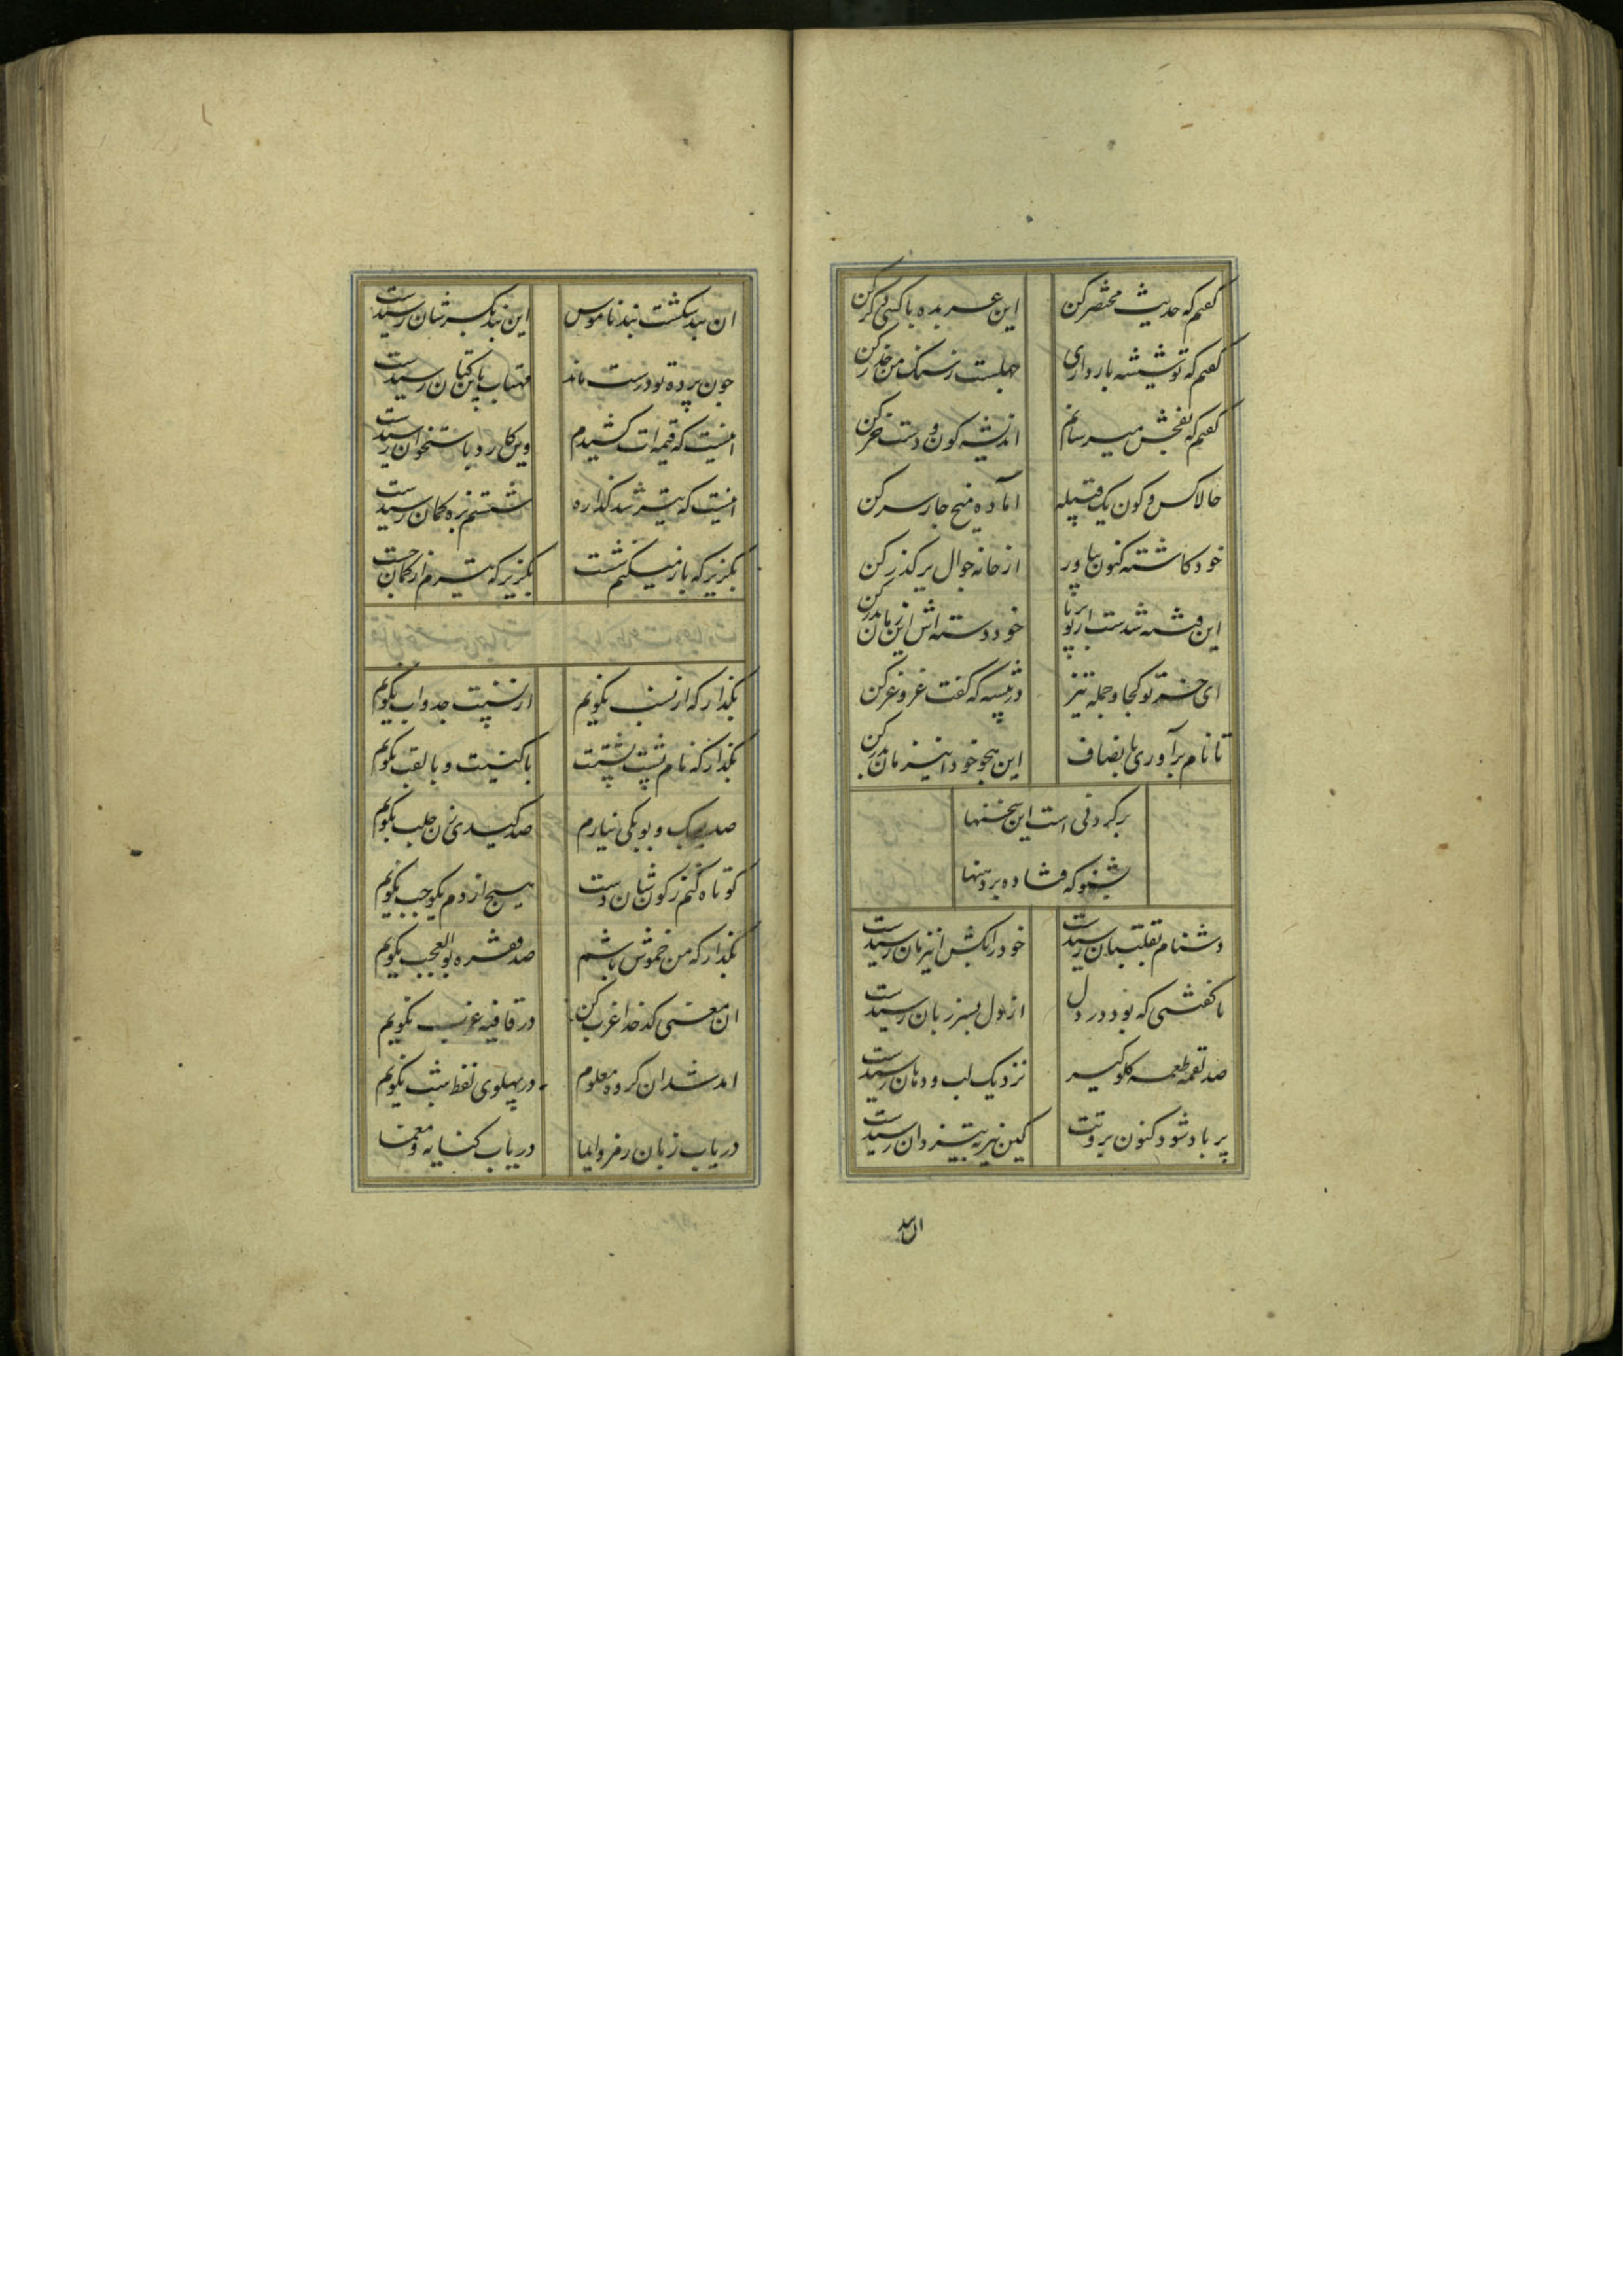 کفتم که حدیث مختصر کن این عربده با کسی دکر کن
کفتم که تو شیشه بار داری جهلست ز سنک من حذر کن
کفتم که بفحش میرسانم اندیشه کون و دست خر کن
حالا کس و کون یک قبیله اماده میخ چار سر کن
خود کاشته کنون بیاور از خانه جوال بر کذر کن
این فتنه شدست از تو بر پا خود دسته اش این زمان بدر کن
ای خر تو کجا و جمله تیز در بیسه که کفت غر و غر کن
تا نام برآوری بانصاف این هجو خود از نیز مان کن
بر کردنی است این سخنها
بشنو که فتاده بر دهنها
دشنام بقلتبان رسیدست خود را بکش این زمان رسیدست
ناکفتنی که بود در دل از دل بسر زبان رسیدست
صد لقمه طعمه کلوکیر نزدیک لب و دهان رسیدست
بر باد شود کنون بروتت کین نیزه به تیزدان رسیدست
ان بند
ان بند شکست بند ناموس این بند بکسر شان رسیدست
چون پرده تو درست ماند مهتاب باین کتان رسیدست
اینست که قیمه ات کشیدم وین کارد باستخوان رسیدست
اینست که تیر شد کذاره شستم بزه کمان رسیدست
بکریز که باز میکنم شست بکریز که تیرم از کمان جست
بکذار که از نسب نکویم از نسبت جد و اب نکویم
بکذار که نام پشت پشتت با کنیت و با لقب نکویم
صد بیک و بوبکی نیارم صد کیدی زن جلب نکویم
کوتاه کنم ز کون شان دست هیچ از دم یک وجب نکویم
بکذار که من خموش باشم صد فقره بوالعجب نکویم
ان معنی کدخدا عزب کن در قافیه عزب نکویم
امد شد ان کروه معلوم در پهلوی نفط شب نکویم
دریاب زبان رمز و ایما دریاب کنایه و معما